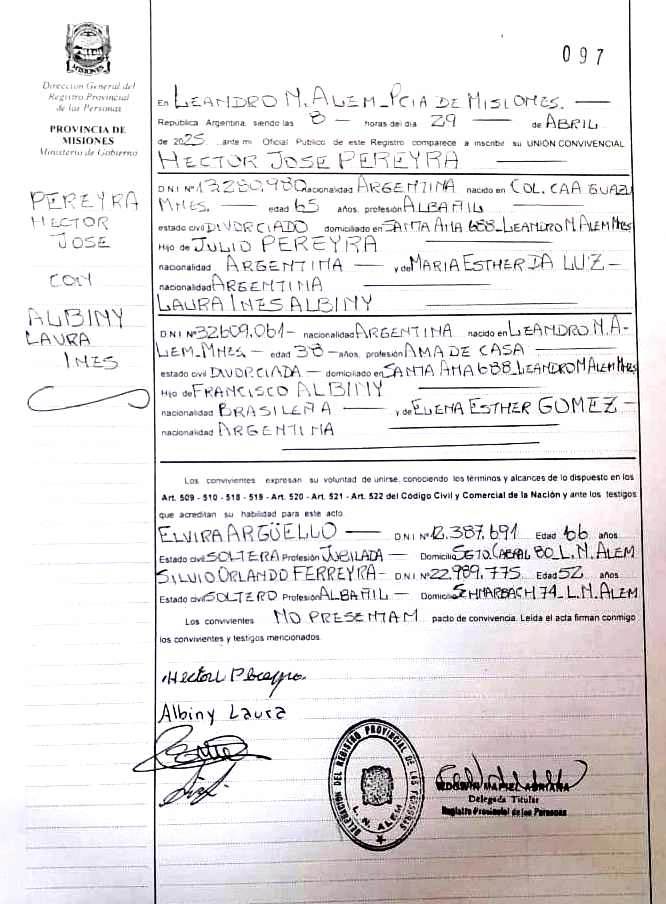 097
MISIONES
Dirección General del
Registro Provincial
de las Personas
PROVINCIA DE
MISIONES
Ministerio de Gobierno
PEREYRA
HECTOR
JOSE
CON
ALBINY
LAURA
INES
En LEANDRO N. ALEM_PCIA DE MISIONES.
Republica Argentina, siendo las 8 - horas del dia 29 — de ABRIL
de 2025 ante mi Oficial Publico de este Registro comparece a inscribir su UNIÓN CONVIVENCIAL
HECTOR JOSE PEREYRA
D N I Nº 13.280.980 nacionalidad ARGENTINA nacido en COL. CAA GUAZU
MNES. — edad 65 años, profesión ALBAÑIL
estado civil DIVORCIADO domiciliado en SANTA ANA 688_LEANDRO N ALEM Mnes
Hijo de JULIO PEREYRA
nacionalidad ARGENTINA — y de MARIA ESTHER DA LUZ -
nacionalidad ARGENTINA
LAURA INES ALBINY
D N I Nº 32.609.061- nacionalidad ARGENTINA nacido en LEANDRO N. A-
LEM_MNES. — edad 38 - años, profesión AMA DE CASA
estado civil DIVORCIADA - domiciliado en SANTA ANA 688_LEANDRO N ALEM Mnes
Hijo de FRANCISCO ALBINY
nacionalidad BRASILEÑA — y de ELENA ESTHER GOMEZ -
nacionalidad ARGENTINA
Los convivientes expresan su voluntad de unirse, conociendo los términos y alcances de lo dispuesto en los
Art. 509 - 510 - 518 - 519 - Art. 520 - Art. 521 - Art. 522 del Código Civil y Comercial de la Nación y ante los testigos
que acreditan su habilidad para este acto
ELVIRA ARGÜELLO — D N I Nº 12.387.691 Edad 66 años
Estado civil SOLTERA Profesión JUBILADA — Domicilio SGTO. CABRAL 80_L.N. ALEM
SILVIO ORLANDO FERREYRA - D N I Nº 22.989.775 Edad 52 años
Estado civil SOLTERO Profesión ALBAÑIL - Domicilio 74_L.N. ALEM
Los convivientes NO PRESENTAN pacto de convivencia. Leída el acta firman conmigo
los convivientes y testigos mencionados
Hector
Albiny Laura
DELEGACION DEL REGISTRO PROVINCIAL DE LAS PERSONAS
L. N. ALEM
ADRIANA
Delegada Titular
Registro Provincial de las Personas